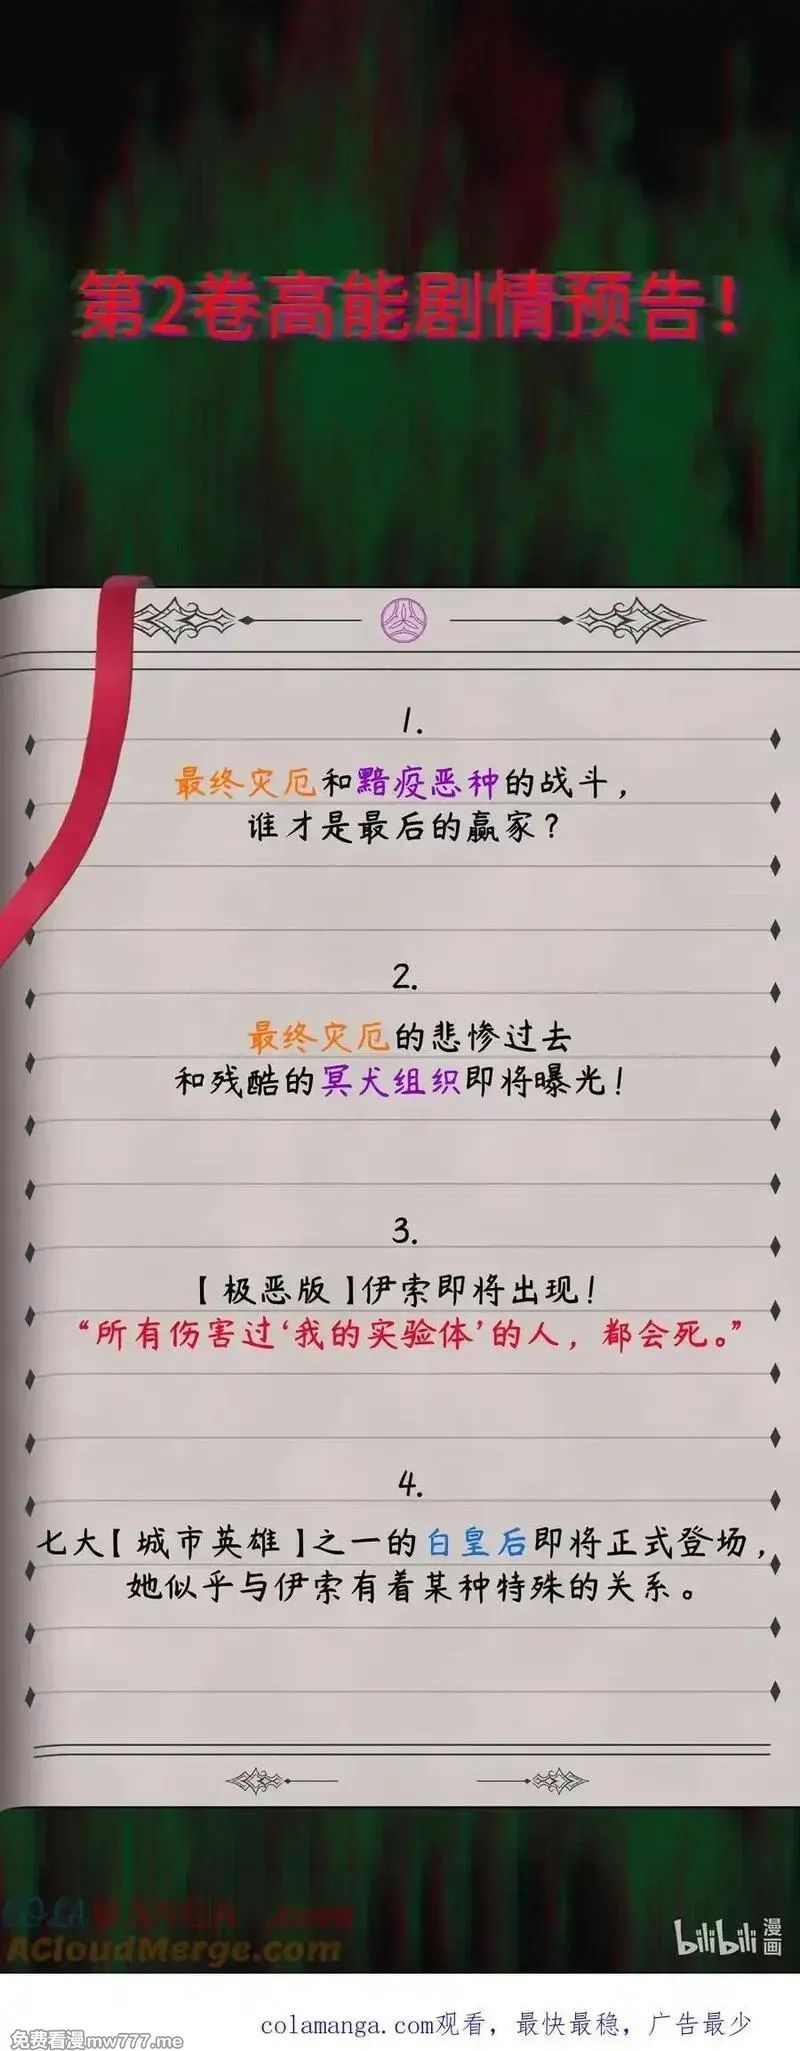 第2卷高能剧情预告！
1.
最终灾厄和黯疫恶种的战斗，
谁才是最后的赢家？
2.
最终灾厄的悲惨过去
和残酷的冥犬组织即将曝光！
3.
【极恶版】伊索即将出现！
“所有伤害过‘我的实验体’的人，都会死。”
4.
七大【城市英雄】之一的白皇后即将正式登场，
她似乎与伊索有着某种特殊的关系。
COLAMANGA.com
ACloudMerge.com
bilibili漫画
colamanga.com观看，最快最稳，广告最少
免费看漫mw777.me